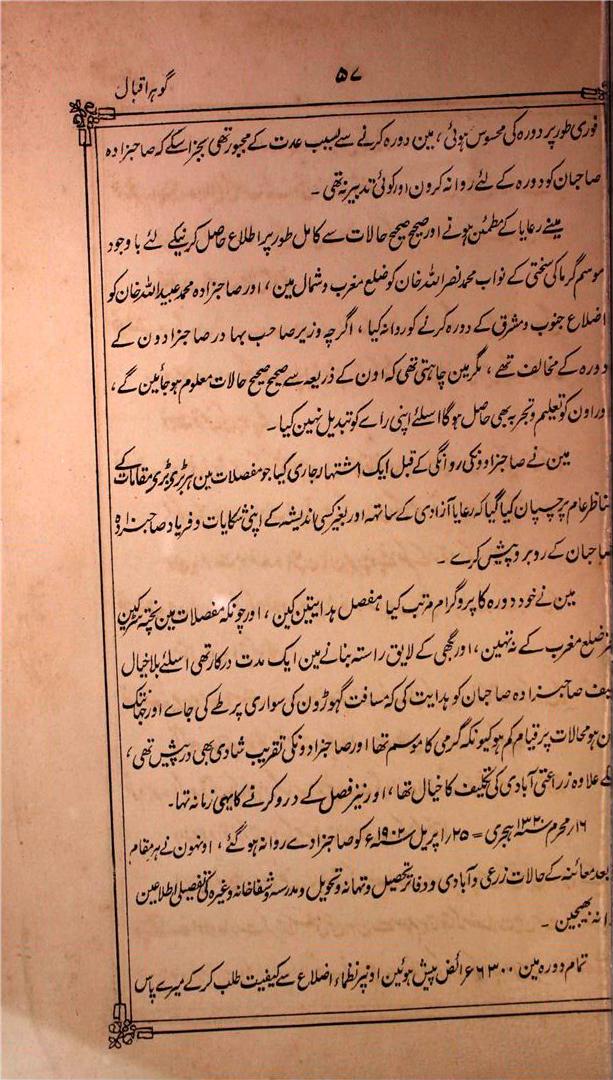 ۵۷
گوہر اقبال
فوری طور پر دورہ کی محسوس ہوئی ، مین دورہ کرنے سے بسبب عدت کے مجبور تھی بجز اسکے کہ صاحبزادہ
صاحبان کو دورہ کے لئے روانہ کرون اور کوئی تدبیر نہ تھی ۔
مینے رعایا کے مطمئن ہونے اور صحیح صحیح حالات سے کامل طور پر اطلاع حاصل کرنیکے لئے باوجود
موسم گرما کی سختی کے نواب محمد نصر اللہ خان کو ضلع مغرب و شمال مین ، اور صاحبزادہ محمد عبید اللہ خان کو
اضلاع جنوب و مشرق کے دورہ کرنے کو روانہ کیا ، اگرچہ وزیر صاحب بہادر صاحبزادون کے
دورہ کے مخالف تھے ، مگر مین چاہتی تھی کہ اون کے ذریعہ سے صحیح صحیح حالات معلوم ہو جائین گے ،
اور اون کو تعلیم و تجربہ بھی حاصل ہوگا اسلئے اپنی راے کو تبدیل نہین کیا ۔
مین نے صاحبزادونکی روانگی کے قبل ایک اشتہار جاری کیا جو مفصلات مین ہر بڑی بڑی مقامات کے
مناظر عام پر چسپان کیا گیا کہ رعایا آزادی کے ساتھہ اور بغیر کسی اندیشہ کے اپنی شکایات و فریاد صاحبزادہ
صاحبان کے روبرو پیش کرے ۔
مین نے خود دورہ کا پروگرام مرتب کیا مفصل ہدایتین کین ، اور چونکہ مفصلات مین پختہ سڑکین
ضلع مغرب کے نہ تہین ، اور بگھی کے لایق راستہ بنانے مین ایک مدت درکار تھی اسلئے بلا خیال
تکلیف صاحبزادہ صاحبان کو ہدایت کی کہ مسافت گہوڑون کی سواری پر طے کی جاے اور جہانتک
ہو محالات پر قیام کم ہو کیونکہ گرمی کا موسم تھا اور صاحبزادونکی تقریب شادی بھی درپیش تھی ،
علاوہ زراعتی آبادی کی تکلیف کا خیال تھا ، اور نیز فصل کے درو کرنے کا یہی زمانہ تہا ۔
۱۶؍ محرم ۱۳۲۰ ہجری = ۲۵؍ اپریل ۱۹۰۲ء کو صاحبزادے روانہ ہو گئے ، اونہون نے ہر مقام
بعد معائنہ کے حالات زرعی و آبادی و دفاتر تحصیل و تہانہ و تحویل و مدرسہ و شفاخانہ وغیرہ کی تفصیلی اطلاعین
بھیجین ۔
تمام دورہ مین ۶۳۰۰ عرائض پیش ہوئین اونپر نظماء اضلاع سے کیفیت طلب کر کے میرے پاس